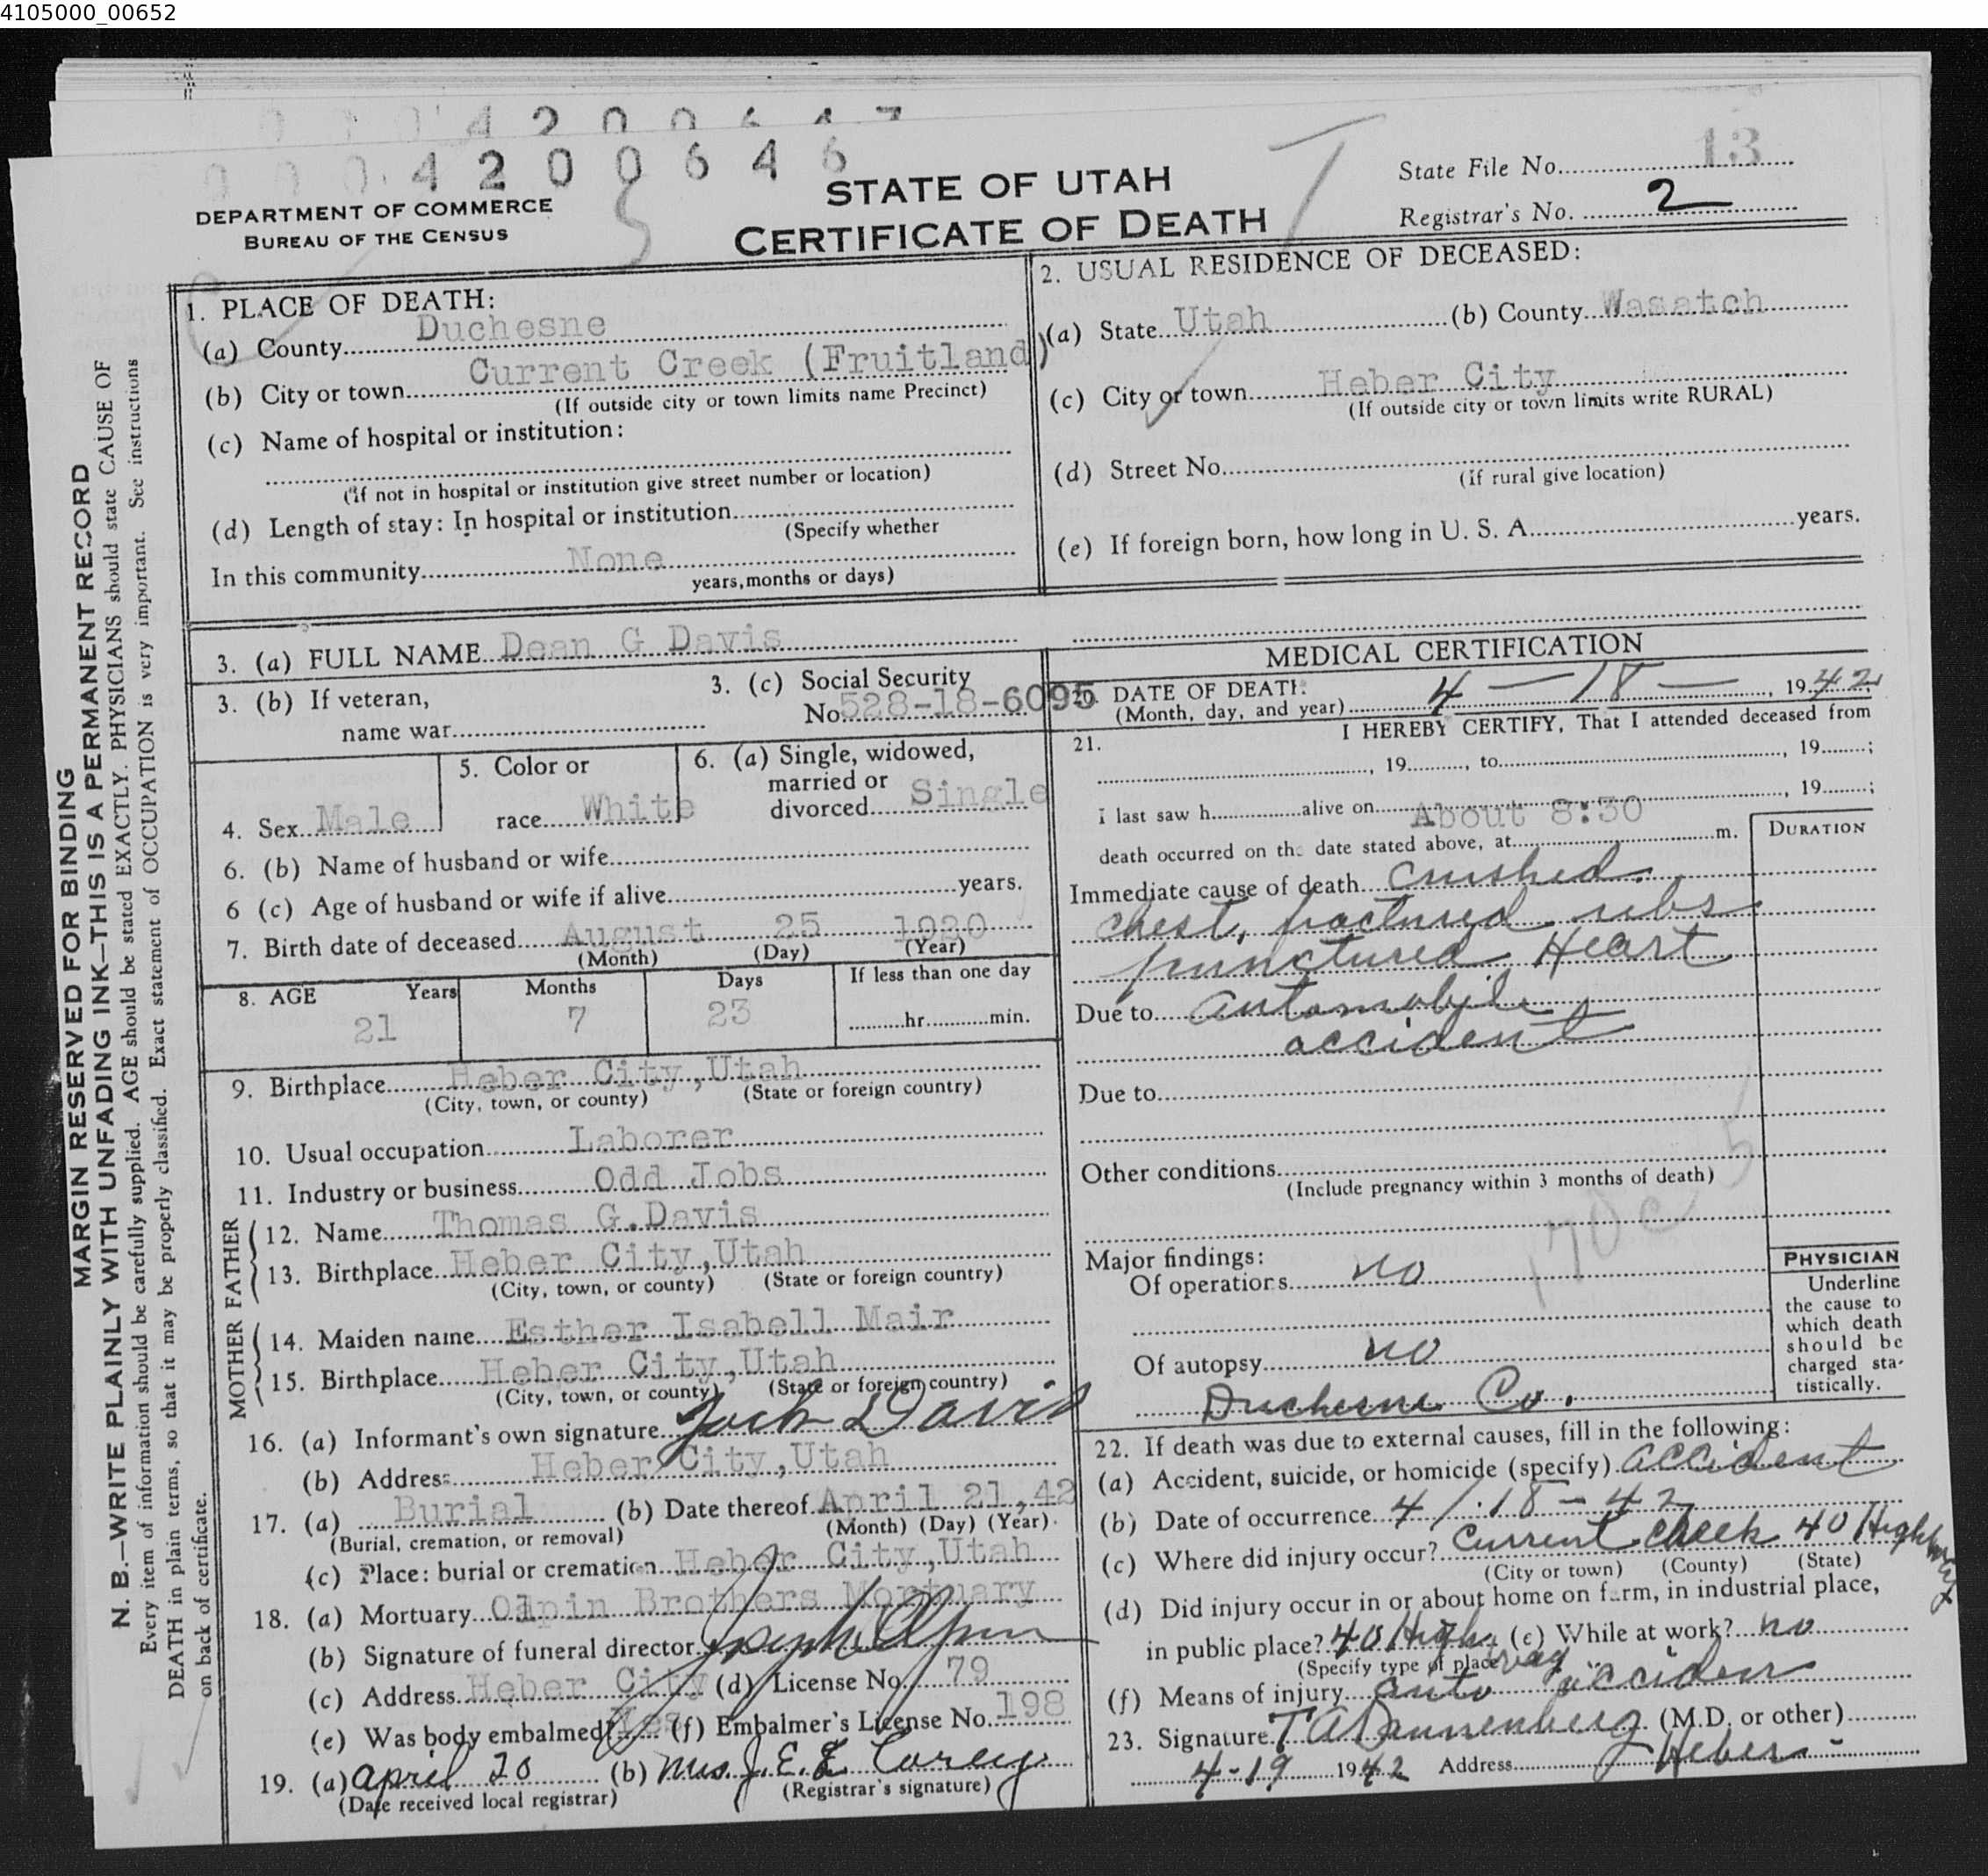 4105000_00652
0 0 0 4 2 0 0 6 4 7
0 0 0 4 2 0 0 6 4 6
DEPARTMENT OF COMMERCE
BUREAU OF THE CENSUS
STATE OF UTAH
CERTIFICATE OF DEATH
State File No. 13
Registrar's No. 2
1. PLACE OF DEATH:
(a) County Duchesne
(b) City or town Current Creek (Fruitland)
(If outside city or town limits name Precinct)
(c) Name of hospital or institution:
(if not in hospital or institution give street number or location)
(d) Length of stay: In hospital or institution
(Specify whether
In this community None
years, months or days)
2. USUAL RESIDENCE OF DECEASED:
(a) State Utah (b) County Wasatch
(c) City or town Heber City
(If outside city or town limits write RURAL)
(d) Street No.
(if rural give location)
(e) If foreign born, how long in U. S. A. years.
3. (a) FULL NAME Dean G Davis
3. (b) If veteran,
name war
3. (c) Social Security
No. 528-18-6095
4. Sex Male
5. Color or
race White
6. (a) Single, widowed,
married or
divorced Single
6. (b) Name of husband or wife
6 (c) Age of husband or wife if alive years.
7. Birth date of deceased August 25 1920
(Month) (Day) (Year)
8. AGE Years Months Days If less than one day
21 7 23 hr. min.
9. Birthplace Heber City, Utah
(City, town, or county) (State or foreign country)
10. Usual occupation Laborer
11. Industry or business Odd Jobs
FATHER
12. Name Thomas G. Davis
13. Birthplace Heber City, Utah
(City, town, or county) (State or foreign country)
MOTHER
14. Maiden name Esther Isabell Mair
15. Birthplace Heber City, Utah
(City, town, or county) (State or foreign country)
16. (a) Informant's own signature Jack Davis
(b) Address Heber City, Utah
17. (a) Burial (b) Date thereof April 21, 42
(Burial, cremation, or removal) (Month) (Day) (Year)
(c) Place: burial or cremation Heber City, Utah
18. (a) Mortuary Olpin Brothers Mortuary
(b) Signature of funeral director Joseph Olpin
(c) Address Heber City (d) License No. 79
(e) Was body embalmed? Yes (f) Embalmer's License No. 198
19. (a) April 20 (b) Mrs. J. E. Corey
(Date received local registrar) (Registrar's signature)
MEDICAL CERTIFICATION
DATE OF DEATH:
(Month, day, and year) 4 - 18 - , 1942
21. I HEREBY CERTIFY, That I attended deceased from
, 19 , to , 19 ;
I last saw h alive on , 19 ;
About 8:30
death occurred on the date stated above, at m.
DURATION
Immediate cause of death crushed
chest, fractured ribs
punctured Heart
Due to automobile
accident
Due to
Other conditions
(Include pregnancy within 3 months of death)
170c
Major findings:
Of operations no
Of autopsy no
Duchesne Co.
PHYSICIAN
Underline
the cause to
which death
should be
charged sta-
tistically.
22. If death was due to external causes, fill in the following:
(a) Accident, suicide, or homicide (specify) accident
(b) Date of occurrence 4/18-42
(c) Where did injury occur? Current Creek 40 Highway
(City or town) (County) (State)
(d) Did injury occur in or about home on farm, in industrial place,
in public place? 40 Highway (e) While at work? no
(Specify type of place)
(f) Means of injury auto acciden
23. Signature T A Dannenberg (M.D. or other)
4-19 1942 Address Heber
MARGIN RESERVED FOR BINDING
N. B.—WRITE PLAINLY WITH UNFADING INK—THIS IS A PERMANENT RECORD
Every item of information should be carefully supplied. AGE should be stated EXACTLY. PHYSICIANS should state CAUSE OF
DEATH in plain terms, so that it may be properly classified. Exact statement of OCCUPATION is very important. See instructions
on back of certificate.